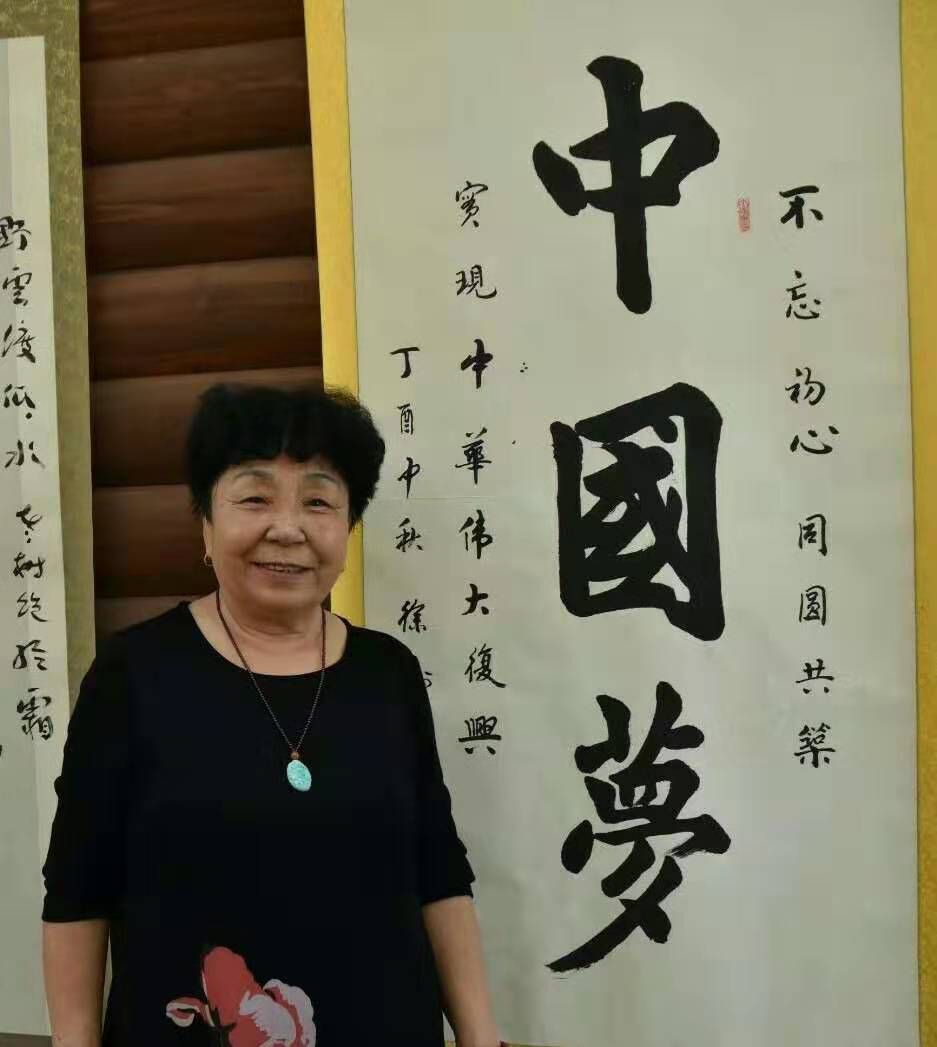 不忘初心同圓共築
中國夢
實現中華伟大復興
丁酉中秋 徐
野雲渡低水 老樹 霜